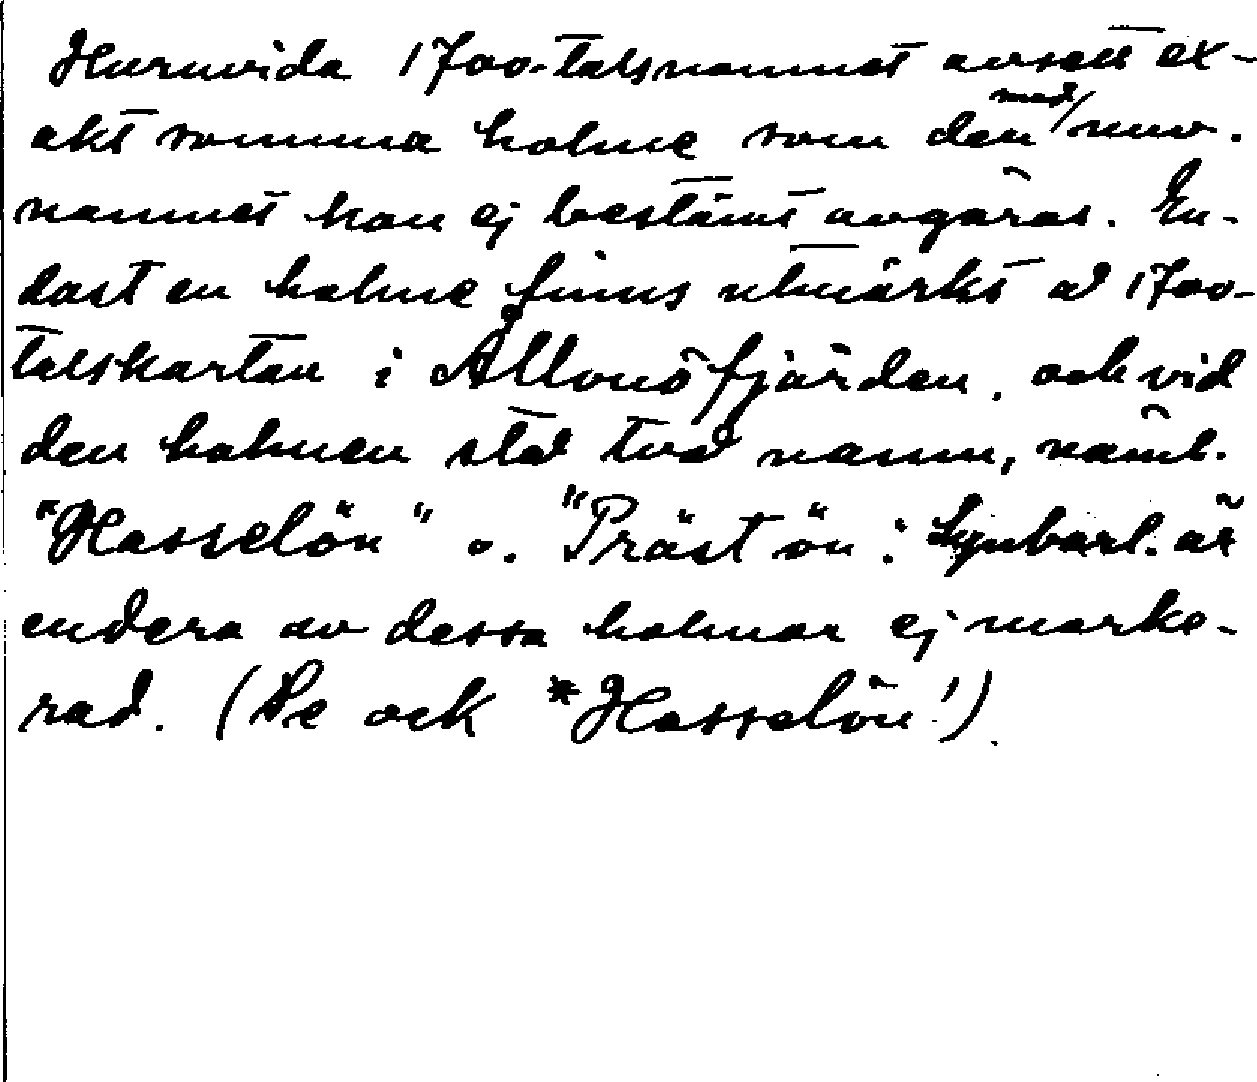 Huruvida 1700-talsnamnet avsett ex-
akt samma holme som den med nuv.
namnet kan ej bestämt avgöras. En-
dast en holme finns utmärkt å 1700-
talskartan i Allonöfjärden, och vid
den holmen stå två namn, näml.
"Hasselön" o. "Prästön". är
endera av dessa holmar ej marke-
rad. (Se ock *Hasselön!)